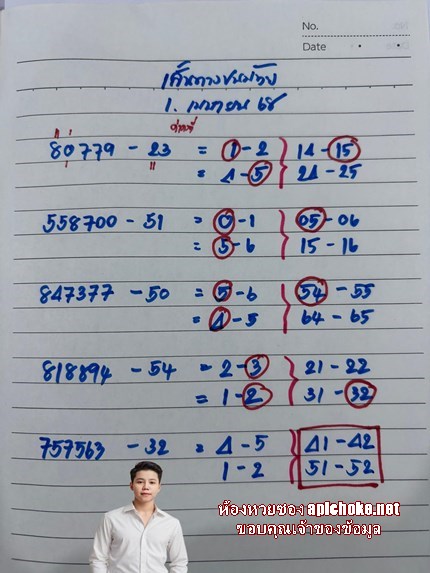 No.
Date
1. เมษายน 68
80779 - 23 = 1-2 } 14-15
= 4-5 } 24-25
558700 - 51 = 0-1 } 05-06
= 5-6 } 15-16
847377 - 50 = 5-6 } 54-55
= 4-5 } 64-65
818894 - 54 = 2-3 } 21-22
= 1-2 } 31-32
757563 - 32 = 4-5 } 41-42
1-2 } 51-52
ห้องหวยซอง apichoke.net
ขอบคุณเจ้าของข้อมูล